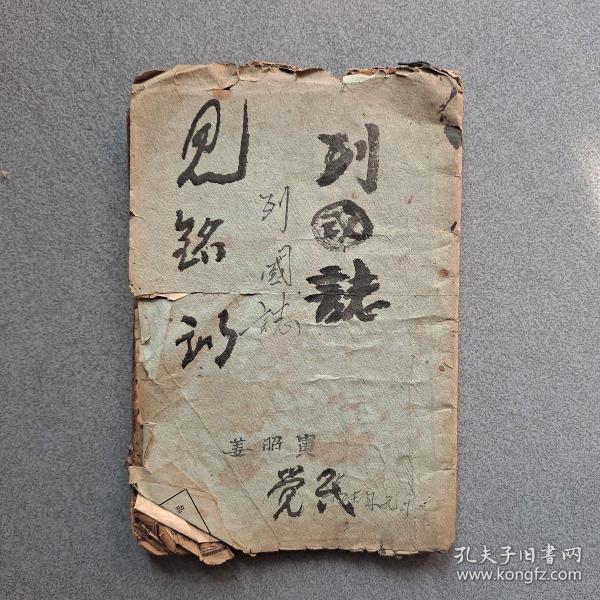 列國誌
列國誌
見銘訓
姜昭寅
党民
孔夫子旧书网
www.kongfz.com